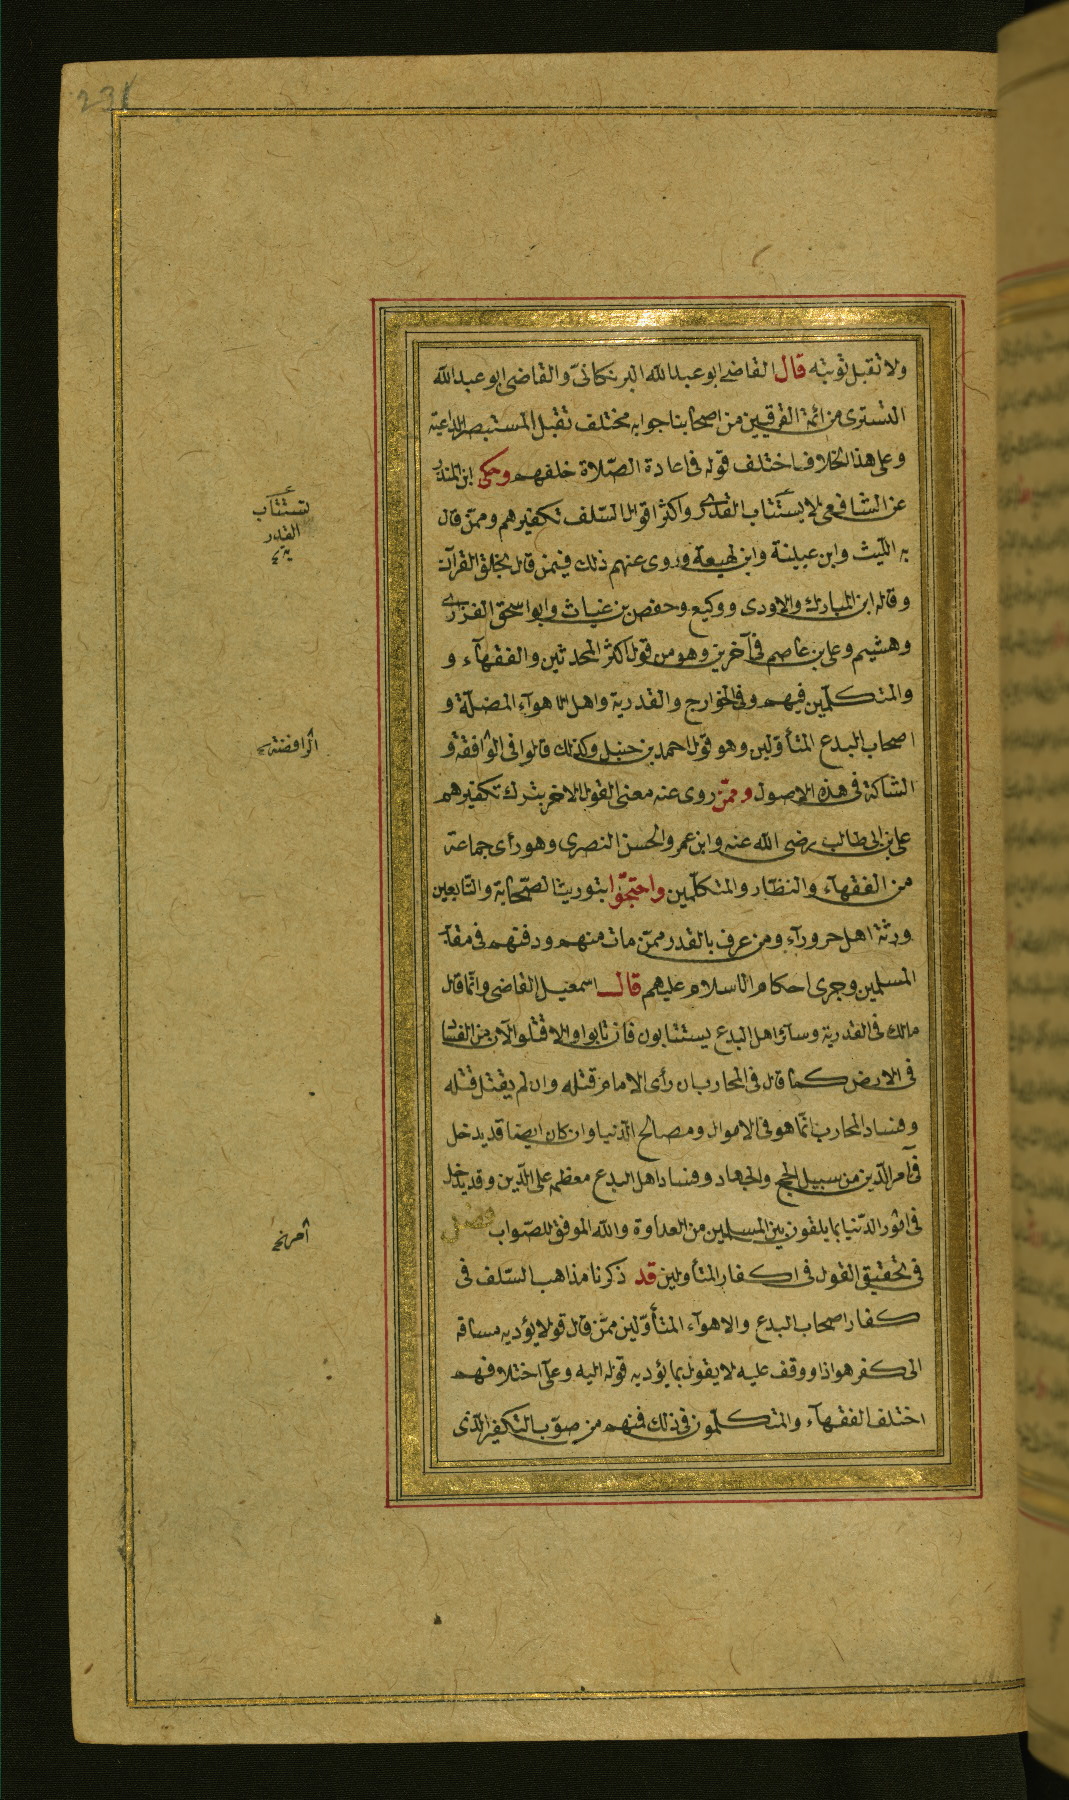 231
ولا تقبل توبته قال القاضي ابو عبد الله البرنكانيّ والقاضي ابو عبد الله
التسترى من ائمة الفرقيين من اصحابنا جوابه مختلف تقبل المستبصر الداعية
وعلى هذا الخلاف اختلف قوله فى اعادة الصّلاة خلفهم وحكى ابن المنذر
عن الشافعى لا يستتاب القدرى واكثر اقوال السّلف تكفيرهم وممّن قال
به الليث وابن عيينة وابن لهيعة وروى عنهم ذلك فيمن قال بخلق القرآن
وقاله ابن المبارك والاودى ووكيع وحفص بن غياث وابو اسحق الفزرى
وهشيم وعلى بن عاصم فى آخرين وهو من قول اكثر المحدثين والفقهآء و
والمتكلّمين فيهم وفى الخوارج والقدرية واهل الاهوآء المضلّة و
اصحاب البدع المتأوّلين وهو قول احمد بن حنبل وكذلك قالوا فى الواقفة و
الشاكة فى هذه الاصول وممّن روى عنه معنى القول الاخر بترك تكفيرهم
على بن ابى طالب رضى الله عنه وابن عمر والحسن النصرى وهو رأى جماعة
من الفقهآء والنظّار والمتكلّمين واحتجّوا بتوريث الصّحابة والتّابعين
ورثة اهل حرورآء ومن عرف بالقدر ممّن مات منهم ودفنهم فى مقابر
المسلمين وجرى احكام الاسلام عليهم قال اسمعيل القاضى وانّما قال
مالك فى القدرية وسآئر اهل البدع يستتابون فان تابوا والا قتلوا لانّه من الفساد
فى الارض كما قال فى المحارب ان رأى الامام قتله وان لم يقتل قتله
وفساد المحارب انّما هو فى الاموال ومصالح الدّنيا وان كان ايضا قد يدخل
فى امر الدّين من سبيل الحج والجهاد وفساد اهل البدع معظمه على الدّين وقد يدخل
فى امور الدّنيا بما يلقون بين المسلمين من العداوة والله الموفق للصّواب فصل
فى تحقيق القول فى اكفار المتأولين قد ذكرنا مذاهب السّلف فى
كفار اصحاب البدع والاهوآء المتأوّلين ممّن قال قولا يؤديه مساقه
الى كفر هو اذا ووقف عليه لا يقول بما يؤديه قوله اليه وعلى اختلافهم
اختلف الفقهآء والمتكلّمون فى ذلك فمنهم من صوّب التكفير الّذى
تستتاب
القدر
ية
الرافضة
امر